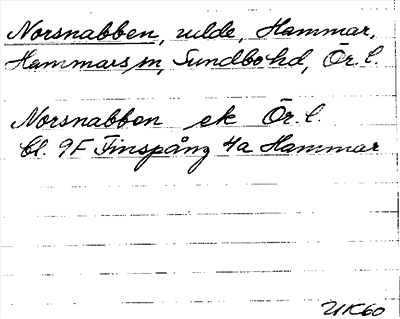 Norsnabben, udde, Hammar,
Hammars sn, Sundbo hd, Ör. l.
Norsnabben ek Ör. l.
Bl. 9F Finspång 4a Hammar
UK60